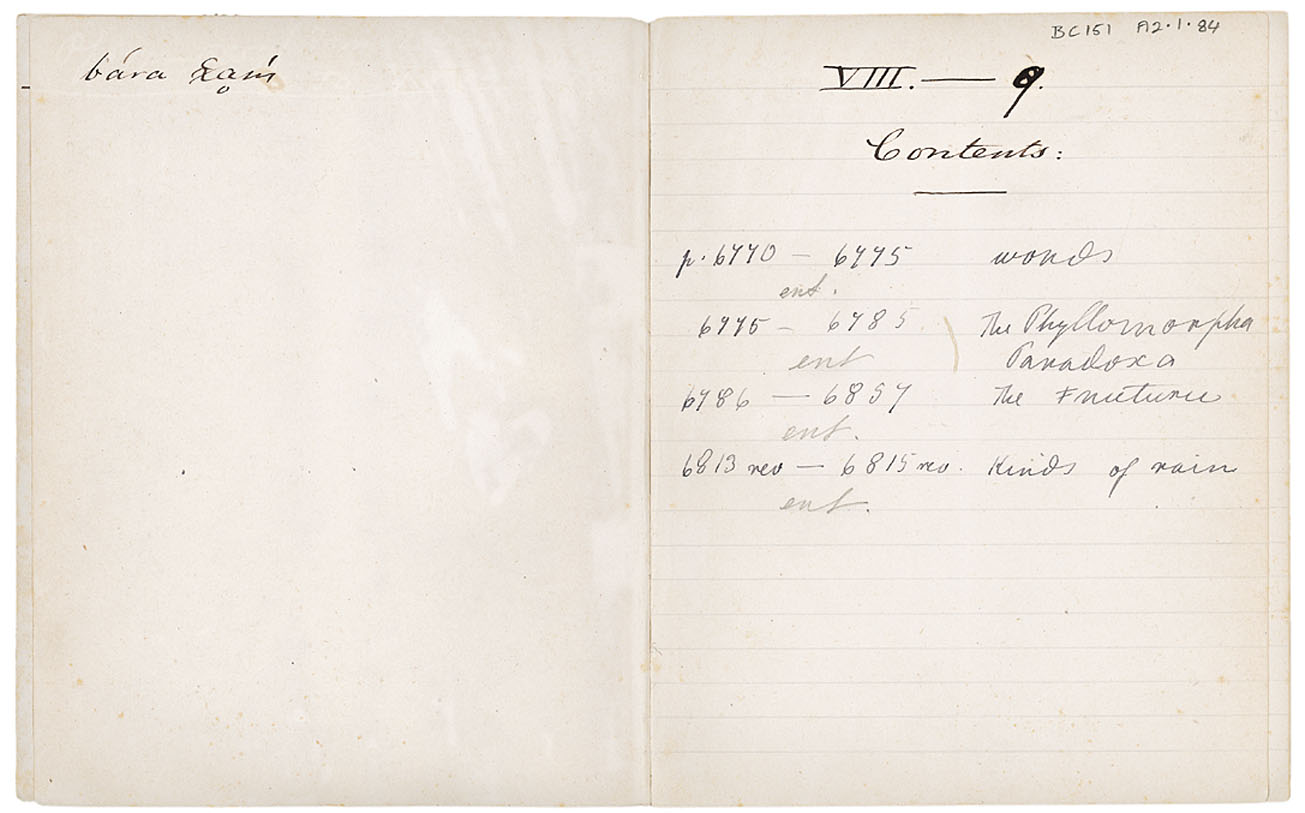 bára
BC151 A2.1.84
VIII. — 9.
Contents:
p. 6770 — 6775 words
ent.
6775 — 6785. The Phyllomorpha
ent Paradoxa
6786 — 6857 The
ent.
6813 rev — 6815 rev. Kinds of rain
ent.